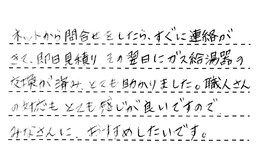 ネットから問合せをしたら、すぐに連絡が
きて、即日見積り その翌日にガス給湯器の
交換が済み、とても助かりました。職人さん
の対応も とても感じが良いですので
みなさんに、おすすめしたいです。